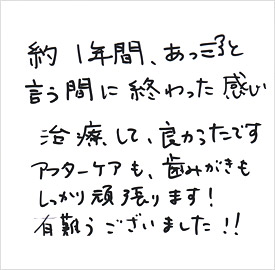 約1年間、あっころと
言う間に終わった感い
治療して、良かったです
アフターケアも、歯みがきも
しっかり頑張ります!
有難うございました!!